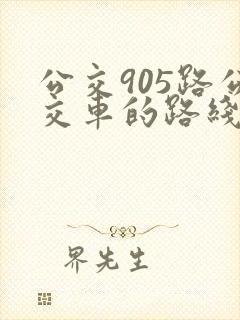 公交905路公
交车的路线
界先生